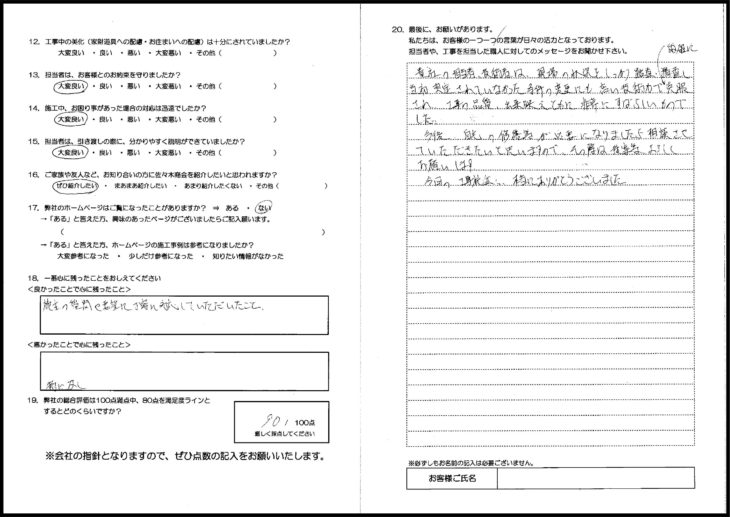 12. 工事中の美化（家財道具への配慮・お住まいへの配慮）は十分にされていましたか？
大変良い ・ 良い ・ 悪い ・ 大変悪い ・ その他（　　　）
13. 担当者は、お客様とのお約束を守りましたか？
大変良い ・ 良い ・ 悪い ・ 大変悪い ・ その他（　　　）
14. 施工中、お困り事があった場合の対応は迅速でしたか？
大変良い ・ 良い ・ 悪い ・ 大変悪い ・ その他（　　　）
15. 担当者は、引き渡しの際に、分かりやすく説明ができていましたか？
大変良い ・ 良い ・ 悪い ・ 大変悪い ・ その他（　　　）
16. ご家族や友人など、お知り合いの方に佐々木商会を紹介したいと思われますか？
ぜひ紹介したい ・ まあまあ紹介したい ・ あまり紹介したくない ・ その他（　　　）
17. 弊社のホームページはご覧になったことがありますか？ ⇒ ある ・ ない
→「ある」と答えた方、興味のあったページがございましたらご記入願います。
（　　　）
→「ある」と答えた方、ホームページの施工事例は参考になりましたか？
大変参考になった ・ 少しだけ参考になった ・ 知りたい情報がなかった
18. 一番心に残ったことをおしえてください
＜良かったことで心に残ったこと＞
質問や要望に丁寧に対応していただいたこと。
＜悪かったことで心に残ったこと＞
特になし
19. 弊社の総合評価は100点満点中、80点を満足度ラインと
するとどのくらいですか？
90 / 100点
厳しく採点してください
※会社の指針となりますので、ぜひ点数の記入をお願いいたします。
20. 最後に、お願いがあります。
私たちは、お客様の一つ一つの言葉が日々の活力となっております。
担当者や、工事を担当した職人に対してのメッセージをお聞かせ下さい。
貴社の担当者、技術者は、現場の状況をしっかり 調査し
当初 されていなかった の にも 高い技術力で実現
され、工事の品質、出来映えともに非常にすばらしいもので
した。
今後、 の修繕等が必要になりましたら相談させ
ていただきたいと思いますので、その際は よろしく
お願いします
今回の工事 、誠にありがとうございました
※必ずしもお名前の記入は必要ございません。
お客様ご氏名